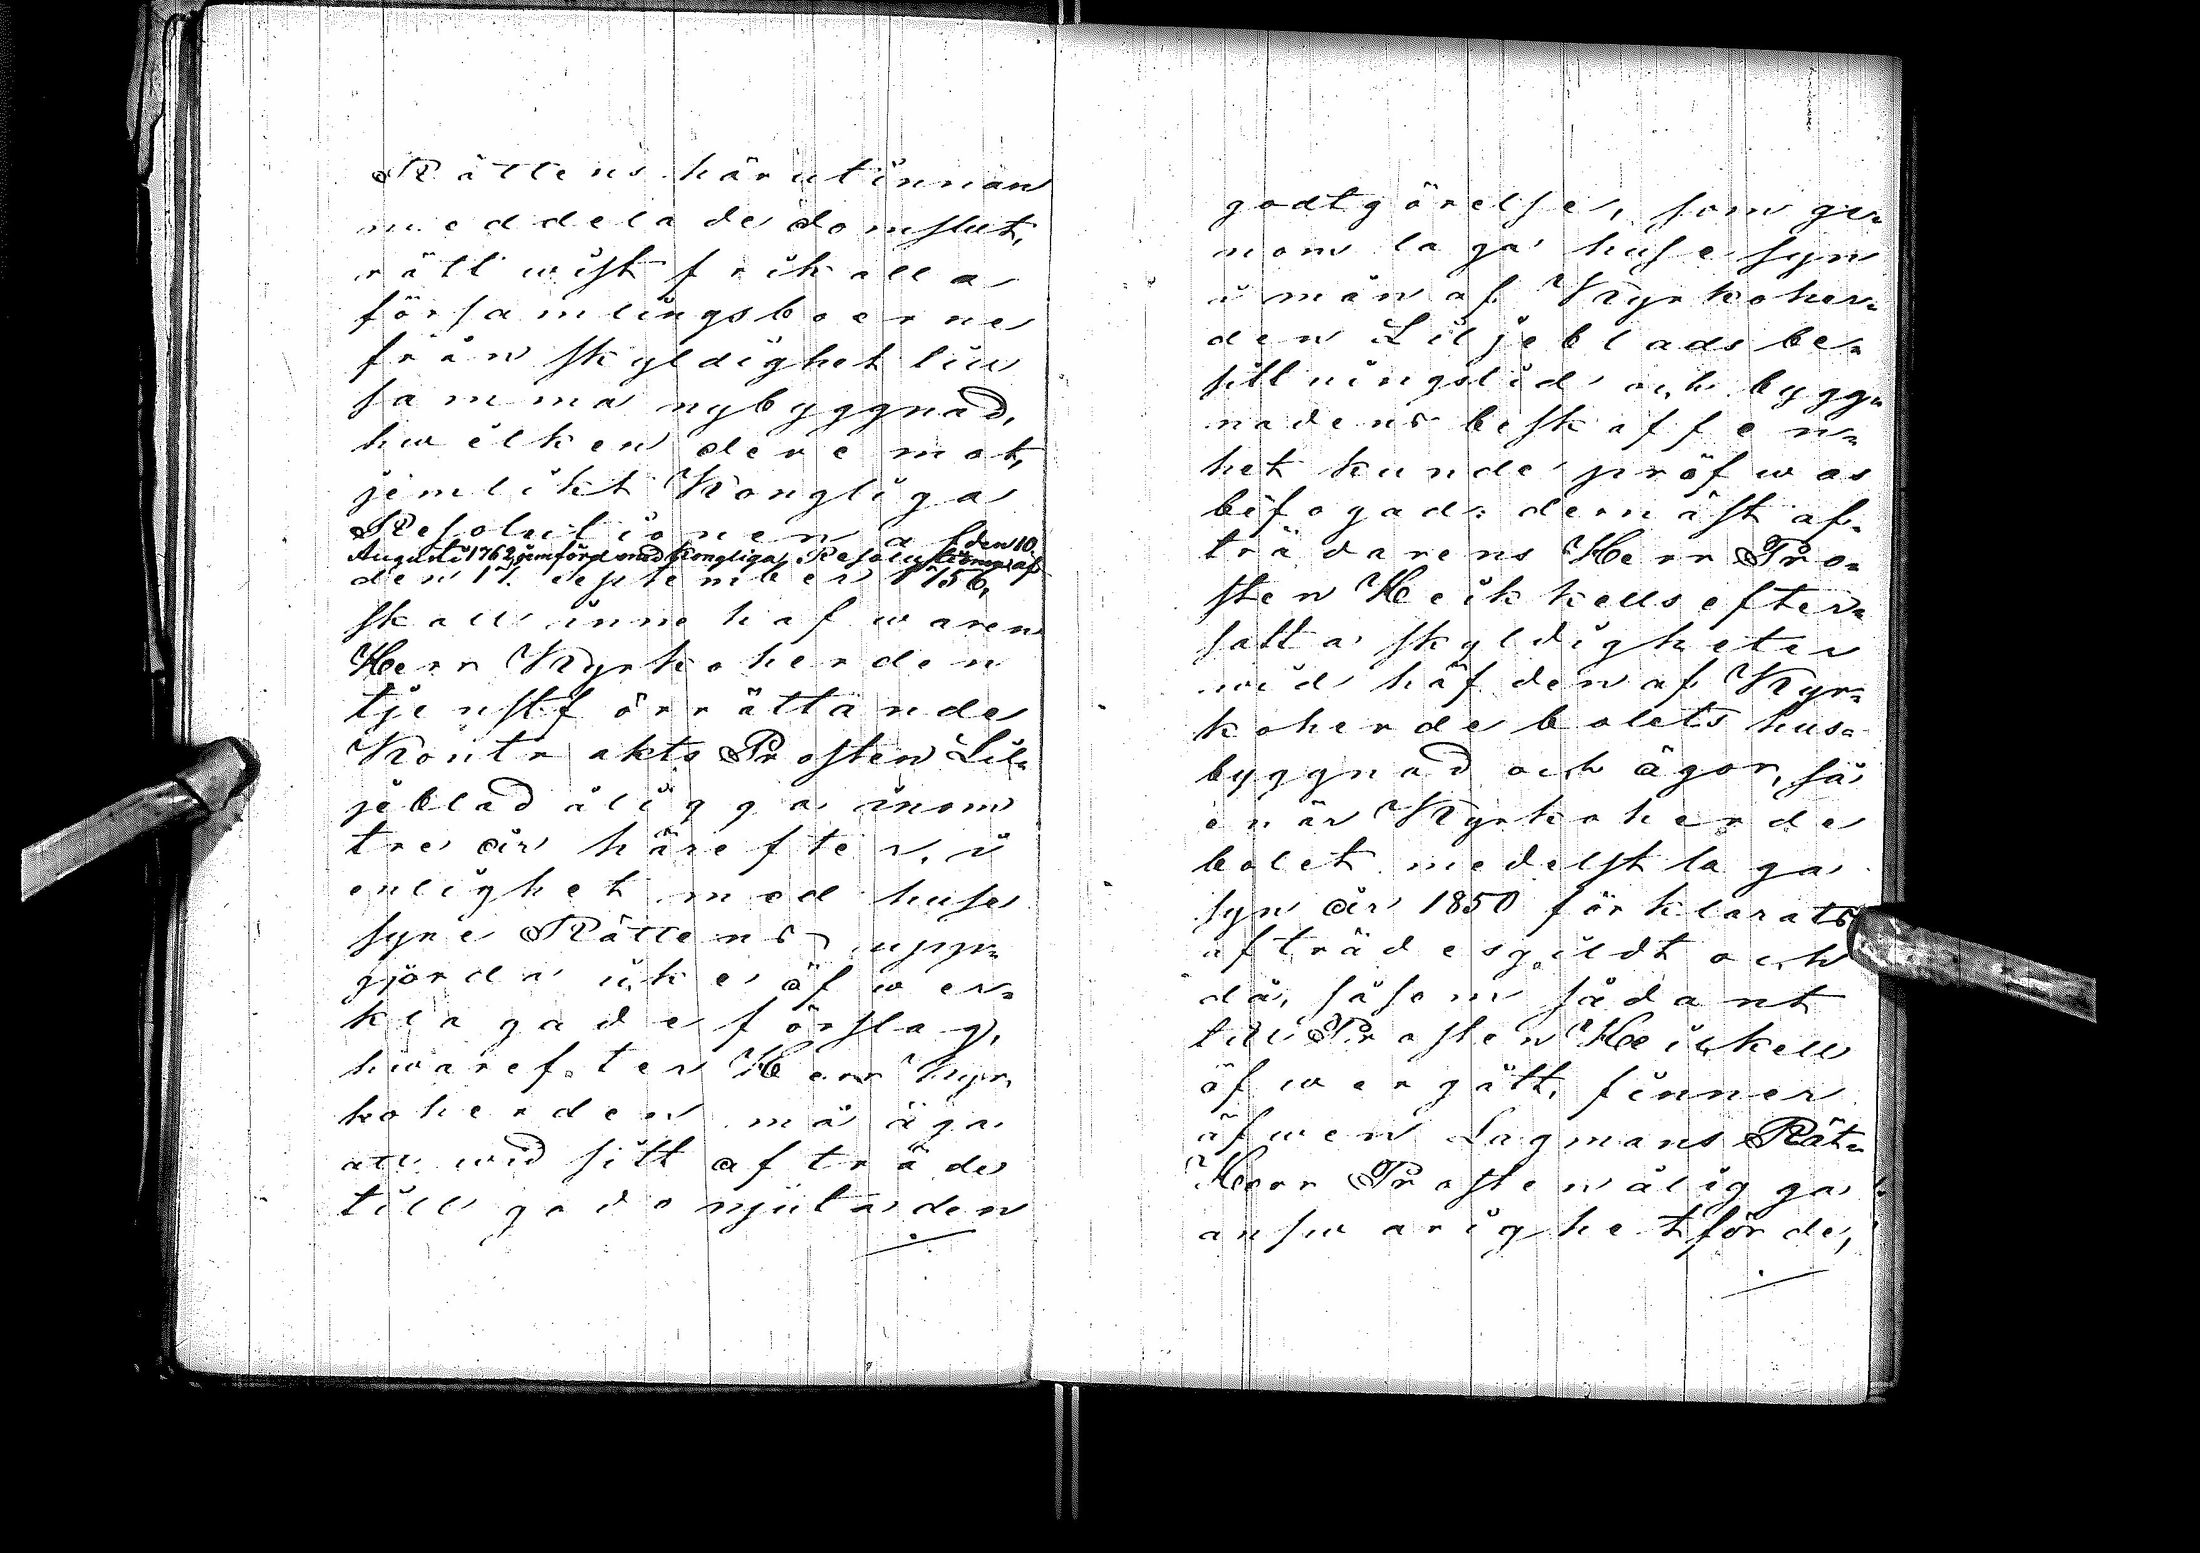 Rättens härutinnan
meddelade domslut,
rättwist frikalla
församlingsboerne
från skyldighet till
samma nybyggnad,
hwilken deremot,
jemlikt Kongliga
Resolutionen af den 10
Augusti 1762, jemförd med Kongliga Resolutionen af
den 17 September 1756,
skall innehafwaren
Herr Kyrkoherden
tjenstförrättande
Kontrakts Prosten Lil-
jeblad åligga inom
tre år härefter, i
enlighet med huse
syne Rättens upp-
gjorda icke öfwer-
klagade förslag,
hwarefter Herr Kyr-
koherden må äga
att wid sitt afträde
till godo njuta den
godtgörelse, som ge-
nom laga huse syn
i mån af Kyrkoher-
den Liljeblads be-
sittningstid och bygg-
nadens beskaffen-
het kunde pröfwas
befogad: dernäst af-
trädarens Herr Pro-
sten Heikkells efter-
satta skyldigheter
wid häfden af Kyr-
koherdebolets hus-
byggnad och ägor, så
enär Kyrkoherde
bolet medelst laga
syn år 1850 förklarats
afträdesgildt och
då, såsom sådant
till Prosten Heikkell
öfwergått, finner
äfwen Lagmans Rät-
Herr Prosten åligga
answarighet för de,